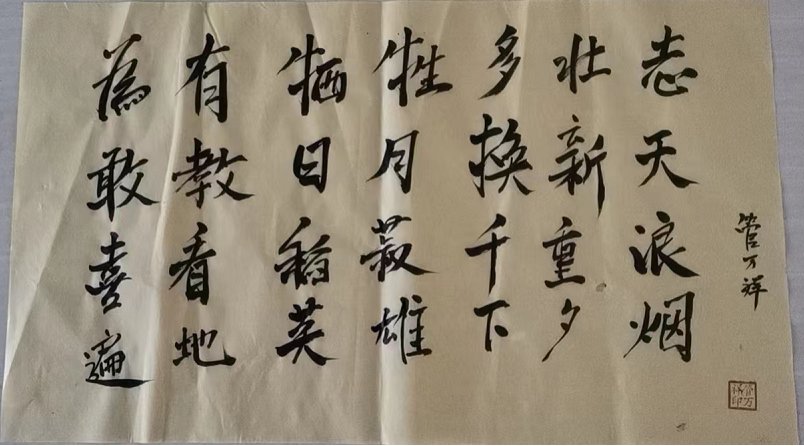 為有牺牲多壮志
敢教日月換新天
喜看稻菽千重浪
遍地英雄下夕烟
管万祥
管万祥印